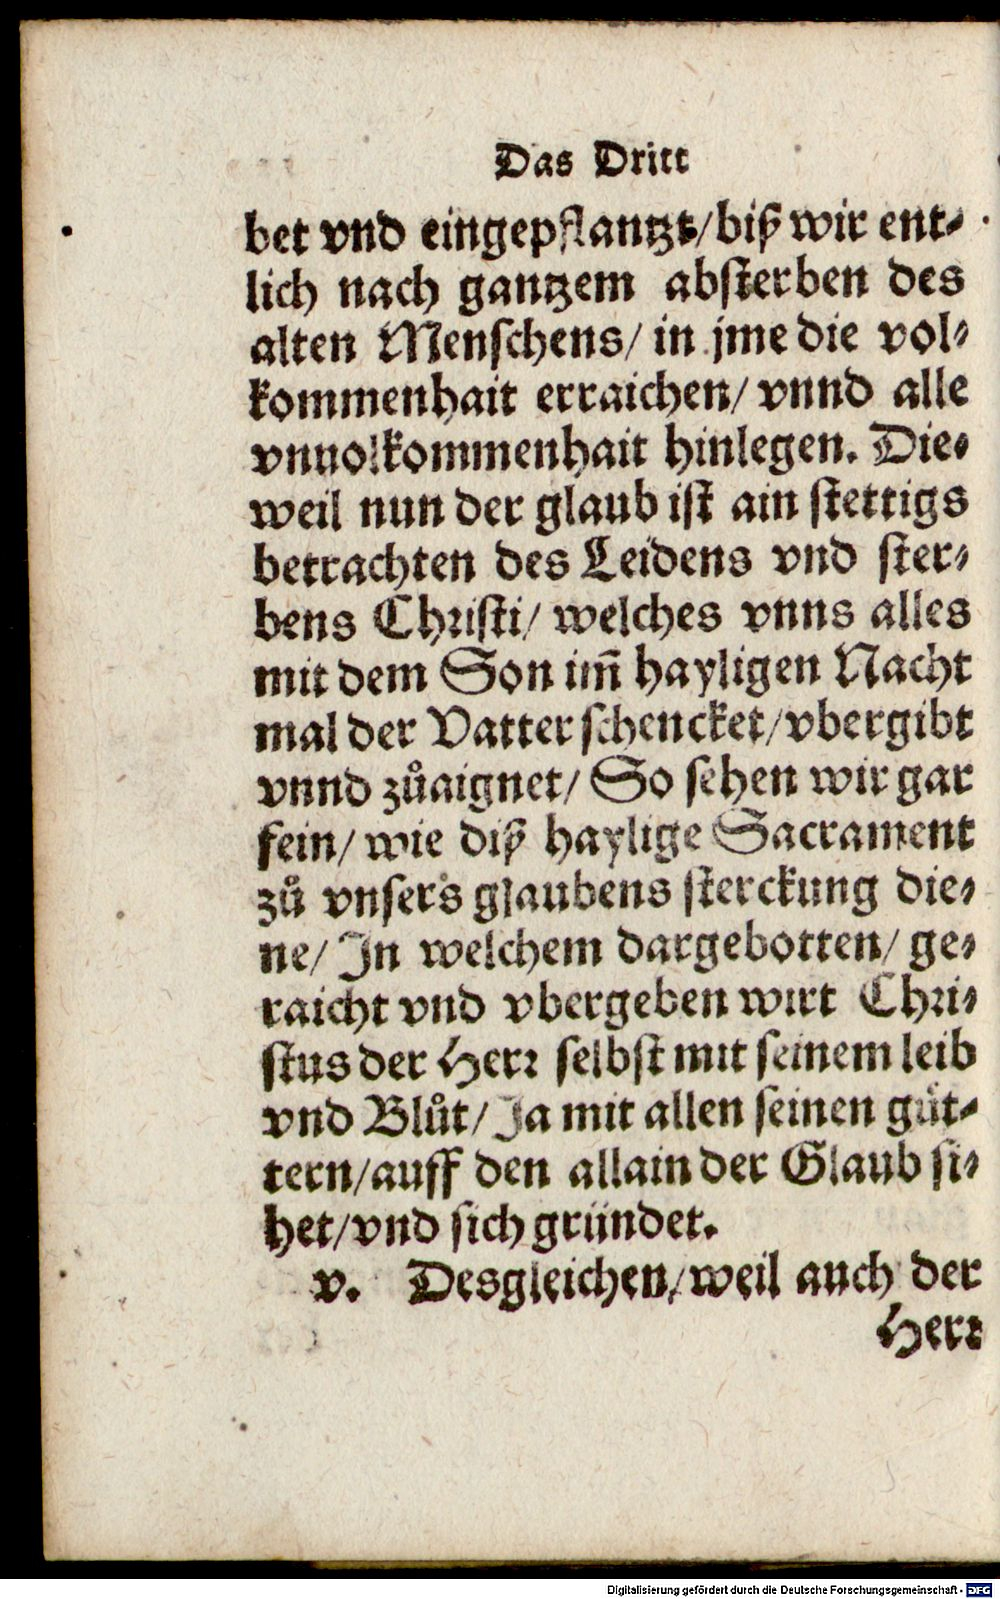 Das Dritt
bet vnd eingepflantzt/biß wir ent⸗
lich nach gantzem absterben des
alten Menschens/ in jme die vol⸗
kommenhait erraichen/ vnnd alle
vnuolkommenhait hinlegen. Die⸗
weil nun der glaub ist ain stettigs
betrachten des Leidens vnd ster⸗
bens Christi/ welches vnns alles
mit dem Son im̃ hayligen Nacht
mal der Vatter schencket/vbergibt
vnnd zůaignet/ So sehen wir gar
fein/ wie diß haylige Sacrament
zů vnsers glaubens sterckung die⸗
ne/ In welchem dargebotten/ ge⸗
raicht vnd vbergeben wirt Chri⸗
stus der Herr selbst mit seinem leib
vnd Blůt/ Ja mit allen seinen güt⸗
tern/auff den allain der Glaub si⸗
het/vnd sich gründet.
v. Desgleichen/weil auch der
Herr
Digitalisierung gefördert durch die Deutsche Forschungsgemeinschaft - DFG